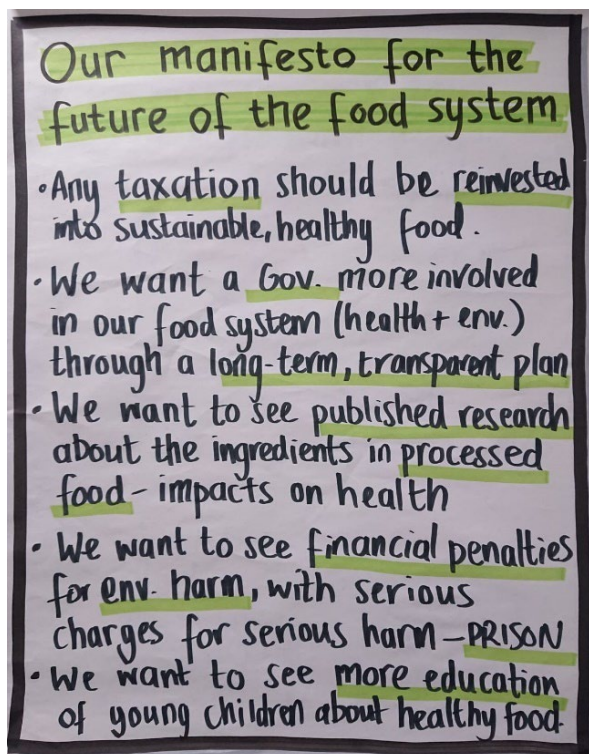 Our manifesto for the
future of the food system
• Any taxation should be reinvested
into sustainable, healthy food.
• We want a Gov. more involved
in our food system (health + env.)
through a long-term, transparent plan
• We want to see published research
about the ingredients in processed
food - impacts on health
• We want to see financial penalties
for env. harm, with serious
charges for serious harm – PRISON
• We want to see more education
of young children about healthy food